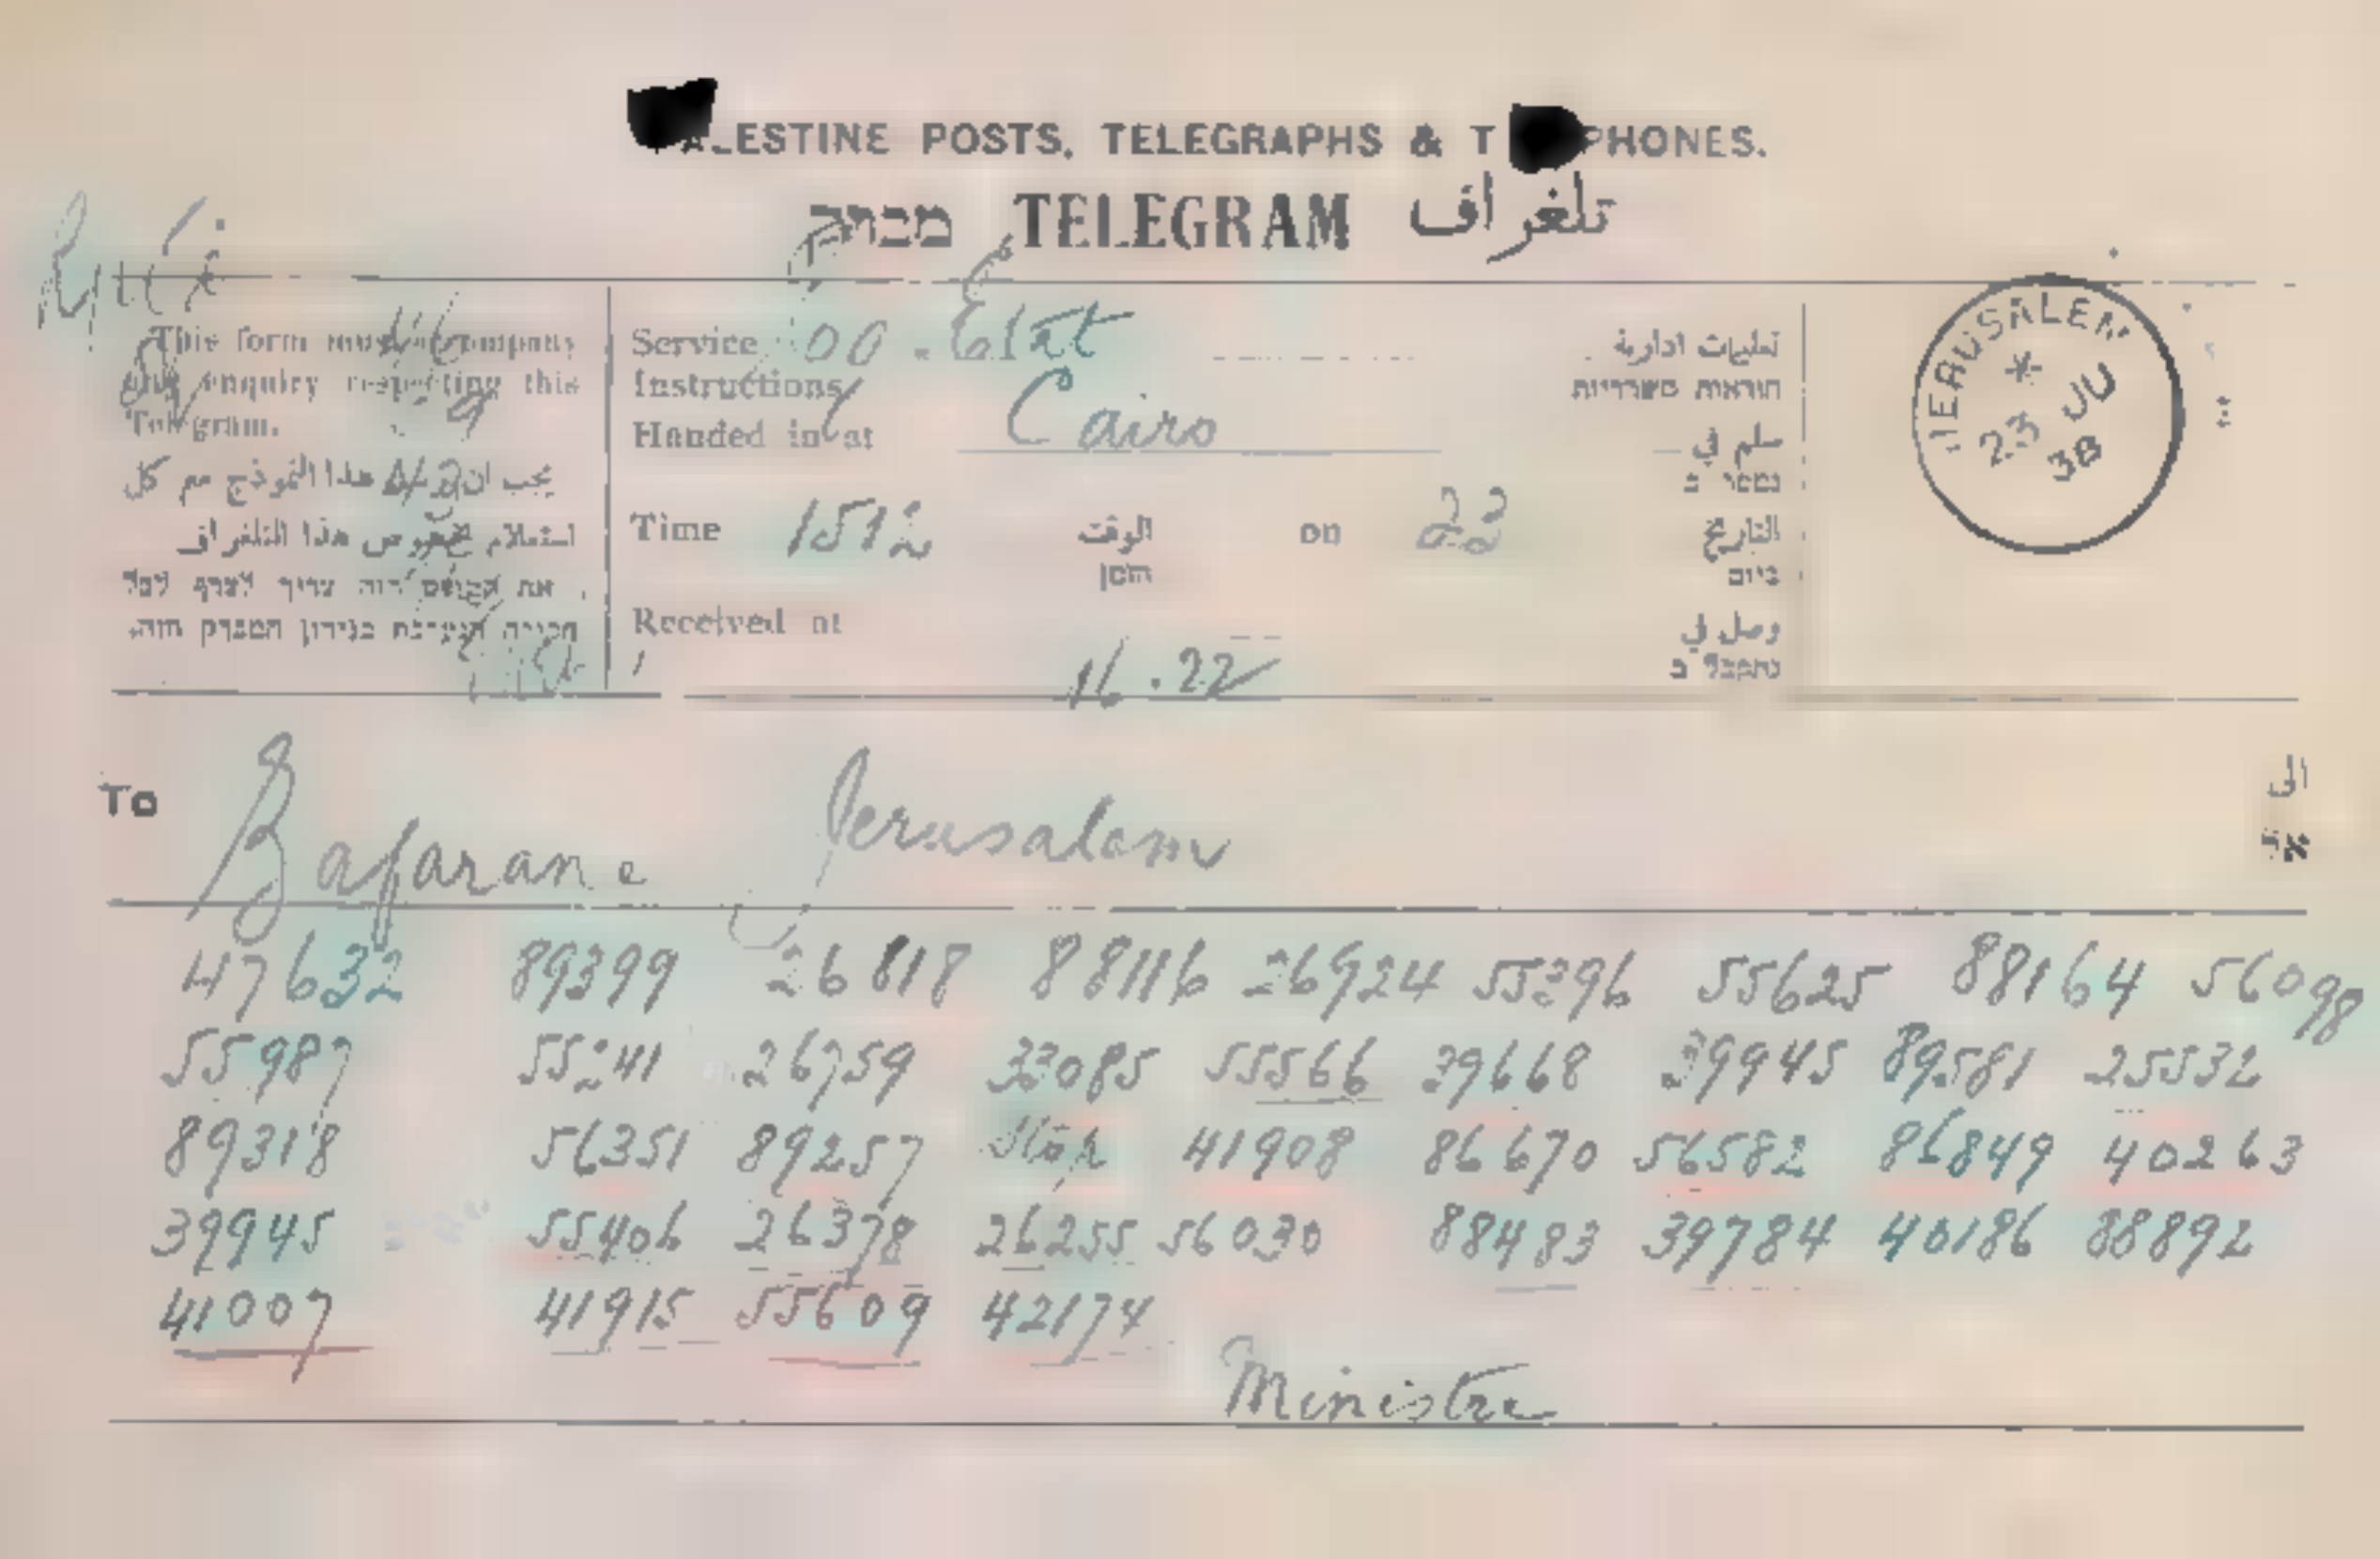 PALESTINE POSTS, TELEGRAPHS & T PHONES.
מברק TELEGRAM تلغراف
This form must accompany
any enquiry respecting this
Telegram.
يجب ان هذا النموذج مع كل
استعلام بخصوص هذا التلغراف
את הטופס הזה צריך לצרף לכל
חקירה הנערכת בנידון המברק הזה.
Service 00. Etat تعليمات ادارية
Instructions הוראות משרדיות
Handed in at Cairo سلم في
נמסר ב
Time 1512 الوقت on 22 التاريخ
הזמן ביום
Received at وصل في
16.22 נתקבל ב
JERUSALEM
23 JU
38
To Bafarane Jerusalem الى
אל
47632 89399 26818 88116 26924 55396 55625 88164 56098
55987 55241 26759 33085 55566 39668 39945 89581 25532
89318 56351 89257 Stop 41908 86670 56582 86849 40263
39945 55406 26378 26255 56030 88483 39784 40186 88892
41007 41915 55609 42174
Ministre